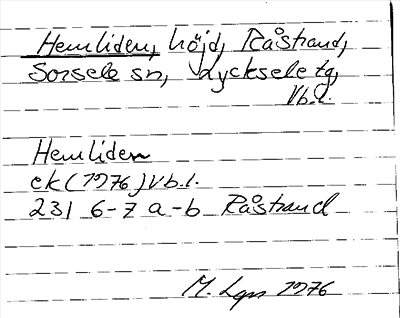 Hemliden, höjd, Råstrand,
Sorsele sn, Lycksele tg,
Vb.l.
Hemliden
ek (1976) Vb.l.
231 6-7 a-b Råstrand
M. Lgn 1976